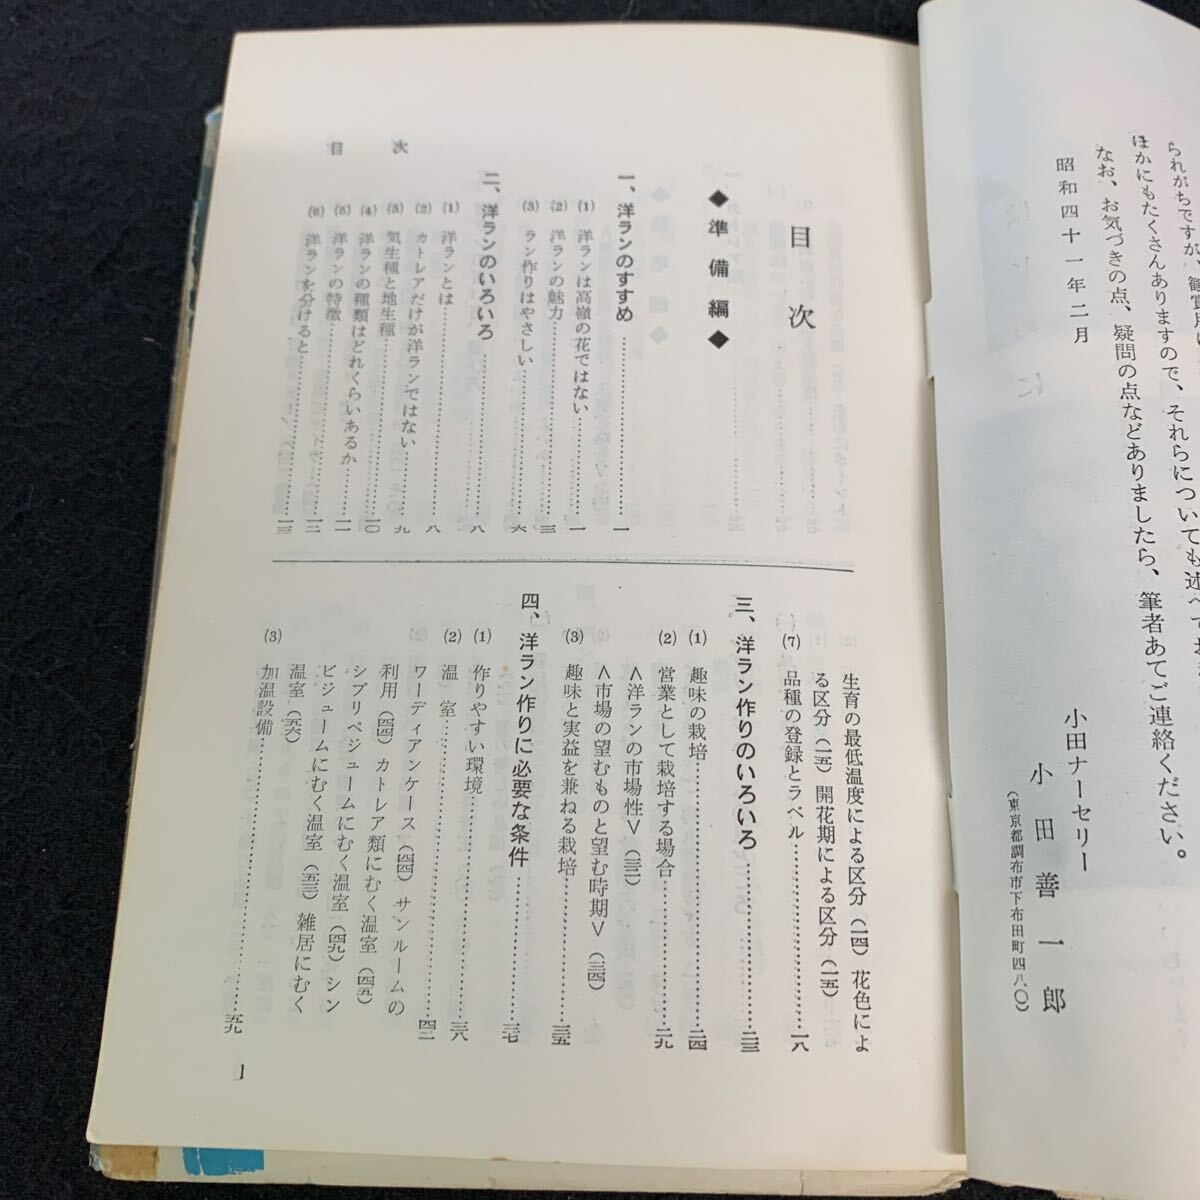 られがちですが、観賞用に
ほかにもたくさんありますので、それらについても述べてお
なお、お気づきの点、疑問の点などありましたら、筆者あてご連絡ください。
昭和四十一年二月
小田ナーセリー
小田善一郎
(東京都調布市下布田町四八〇)
目次
◆準備編◆
一、洋ランのすすめ…………一
(1) 洋ランは高嶺の花ではない…………一
(2) 洋ランの魅力…………三
(3) ラン作りはやさしい…………六
二、洋ランのいろいろ…………八
(1) 洋ランとは…………八
(2) カトレアだけが洋ランではない…………八
(3) 気生種と地生種…………九
(4) 洋ランの種類はどれくらいあるか…………一〇
(5) 洋ランの特徴…………一一
(6) 洋ランを分けると…………一三
生育の最低温度による区分(一四) 花色によ
る区分(一五) 開花期による区分(一五)
(7) 品種の登録とラベル…………一八
三、洋ラン作りのいろいろ…………二三
(1) 趣味の栽培…………二四
(2) 営業として栽培する場合…………二九
<洋ランの市場性>(三二)
<市場の望むものと望む時期>(三四)
(3) 趣味と実益を兼ねる栽培…………三五
四、洋ラン作りに必要な条件…………三七
(1) 作りやすい環境…………三八
(2) 温室…………四二
ワーディアンケース(四四) サンルームの
利用(四四) カトレア類にむく温室(四五)
シプリペジュームにむく温室(四九) シン
ビジュームにむく温室(五三) 雑居にむく
温室(五六)
(3) 加温設備…………五九
1